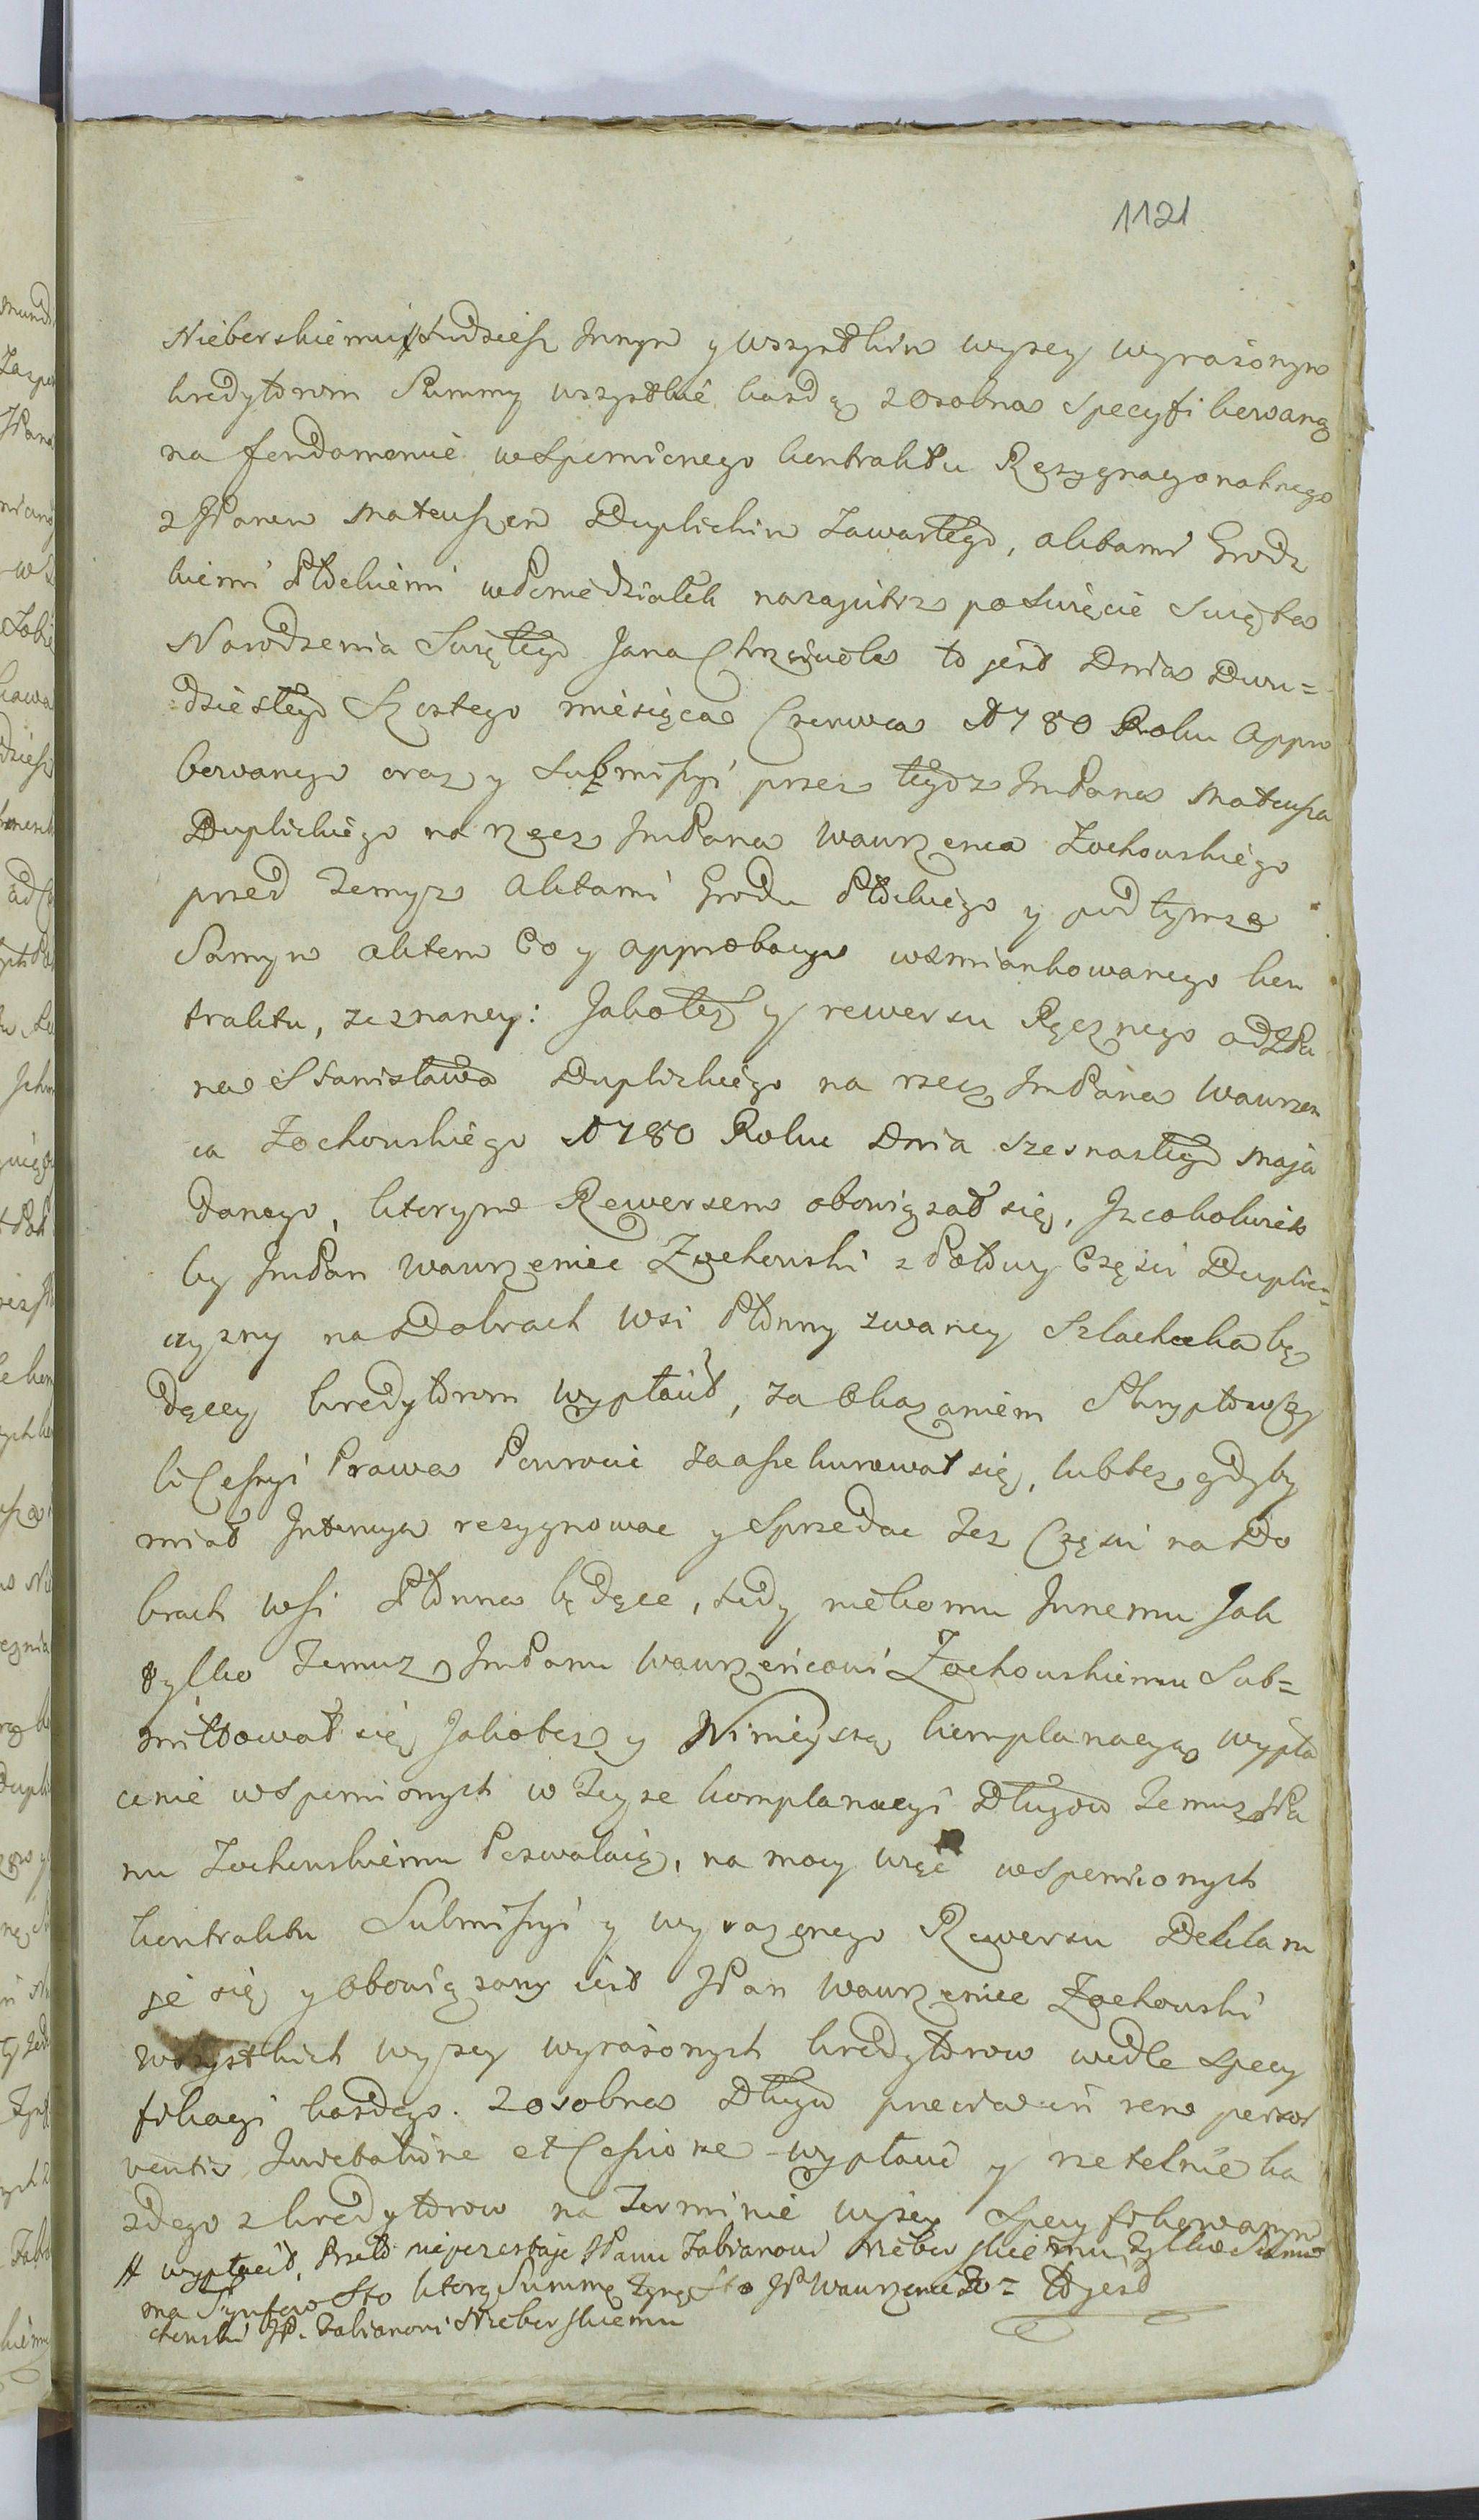 1121
Nieberskiemu # tudziesz Innym y wszystkim wyzey wyrażonym
kredytorom Summy wszystkie kazdą zosobna specyfikowaną
na fendamencie wspomnionego kontraktu Rezygnacyonalnego
z JPanem Mateuszem Duplickim zawartego, aktami Grodz
kiemi Płockiemi w Poniedziałek nazajutrz po Swięcie Swięta
Narodzenia Swiętego Jana Chrzciciela to jest Dnia Dwu=
dziestego Szostego miesiąca Czerwca 1780 Roku appro
bowanego oraz y submissyi przez tegoz ImPana Mateusza
Duplickiego na rzecz ImPana Wawrzenca Zochowskiego
przed temyz Aktami Grodu Płockiego y pod tymze
Samym aktem Co y approbacya wzmiankowanego kon
traktu, zeznaney: Jakotez y rewersu Ręcznego od JPa
na Stanisława Duplickiego na rzecz ImPana Wawrzen
ca Zochowskiego 1780 Roku Dnia szesnastego Maja
Danego, ktorym Rewersem obowiązał się, Iz cokolwiek
by ImPan Wawrzeniec Zochowski z Połowy Częsci Duplic=
czyzny na Dobrach Wsi Płonny zwaney Szlachecka bę
dącey kredytorom wypłacił, za Okazaniem Skryptow
li Cessyi Prawa Powrocic zaassekurował się, lubtez gdyby
miał Intencya rezygnowac y Sprzedac tez Częsci na Do
brach wsi Płonna będące, tedy niekomu Innemu Jak
tylko temuz ImPanu Wawrzeńcowi Zochowskiemu Sub=
mittował się Jakotez y Ninieyszą komplanacyą wypła
cenie wspomionych w teyze komplanacyi Długow temuz JPa
nu Zochowskiemu Pozwalaią, na mocy więc wspomionych
kontraktu Submissyi y wyrazonego Rewersu Deklaru
je się y Obowiązany iest JPan Wawrzeniec Zochowski
wszystkich wyzey wyrażonych kredytorow wedle specy
fikacyi kazdego zosobna Długu
Inscebatione et Cessione wypłacić y rzetelnie ka
zdego z kredytorow na terminie wyzey specyfikowanym
# wypłacił, Przeto nieprzestaje JPanu Fabianowi Nieberskiemu tylko Sum
ma Tynfow Sto ktorą Summę Tynf Sto JP Wawrzeniec Zo= to jest
chowski JP. Fabianowi Nieberskiemu